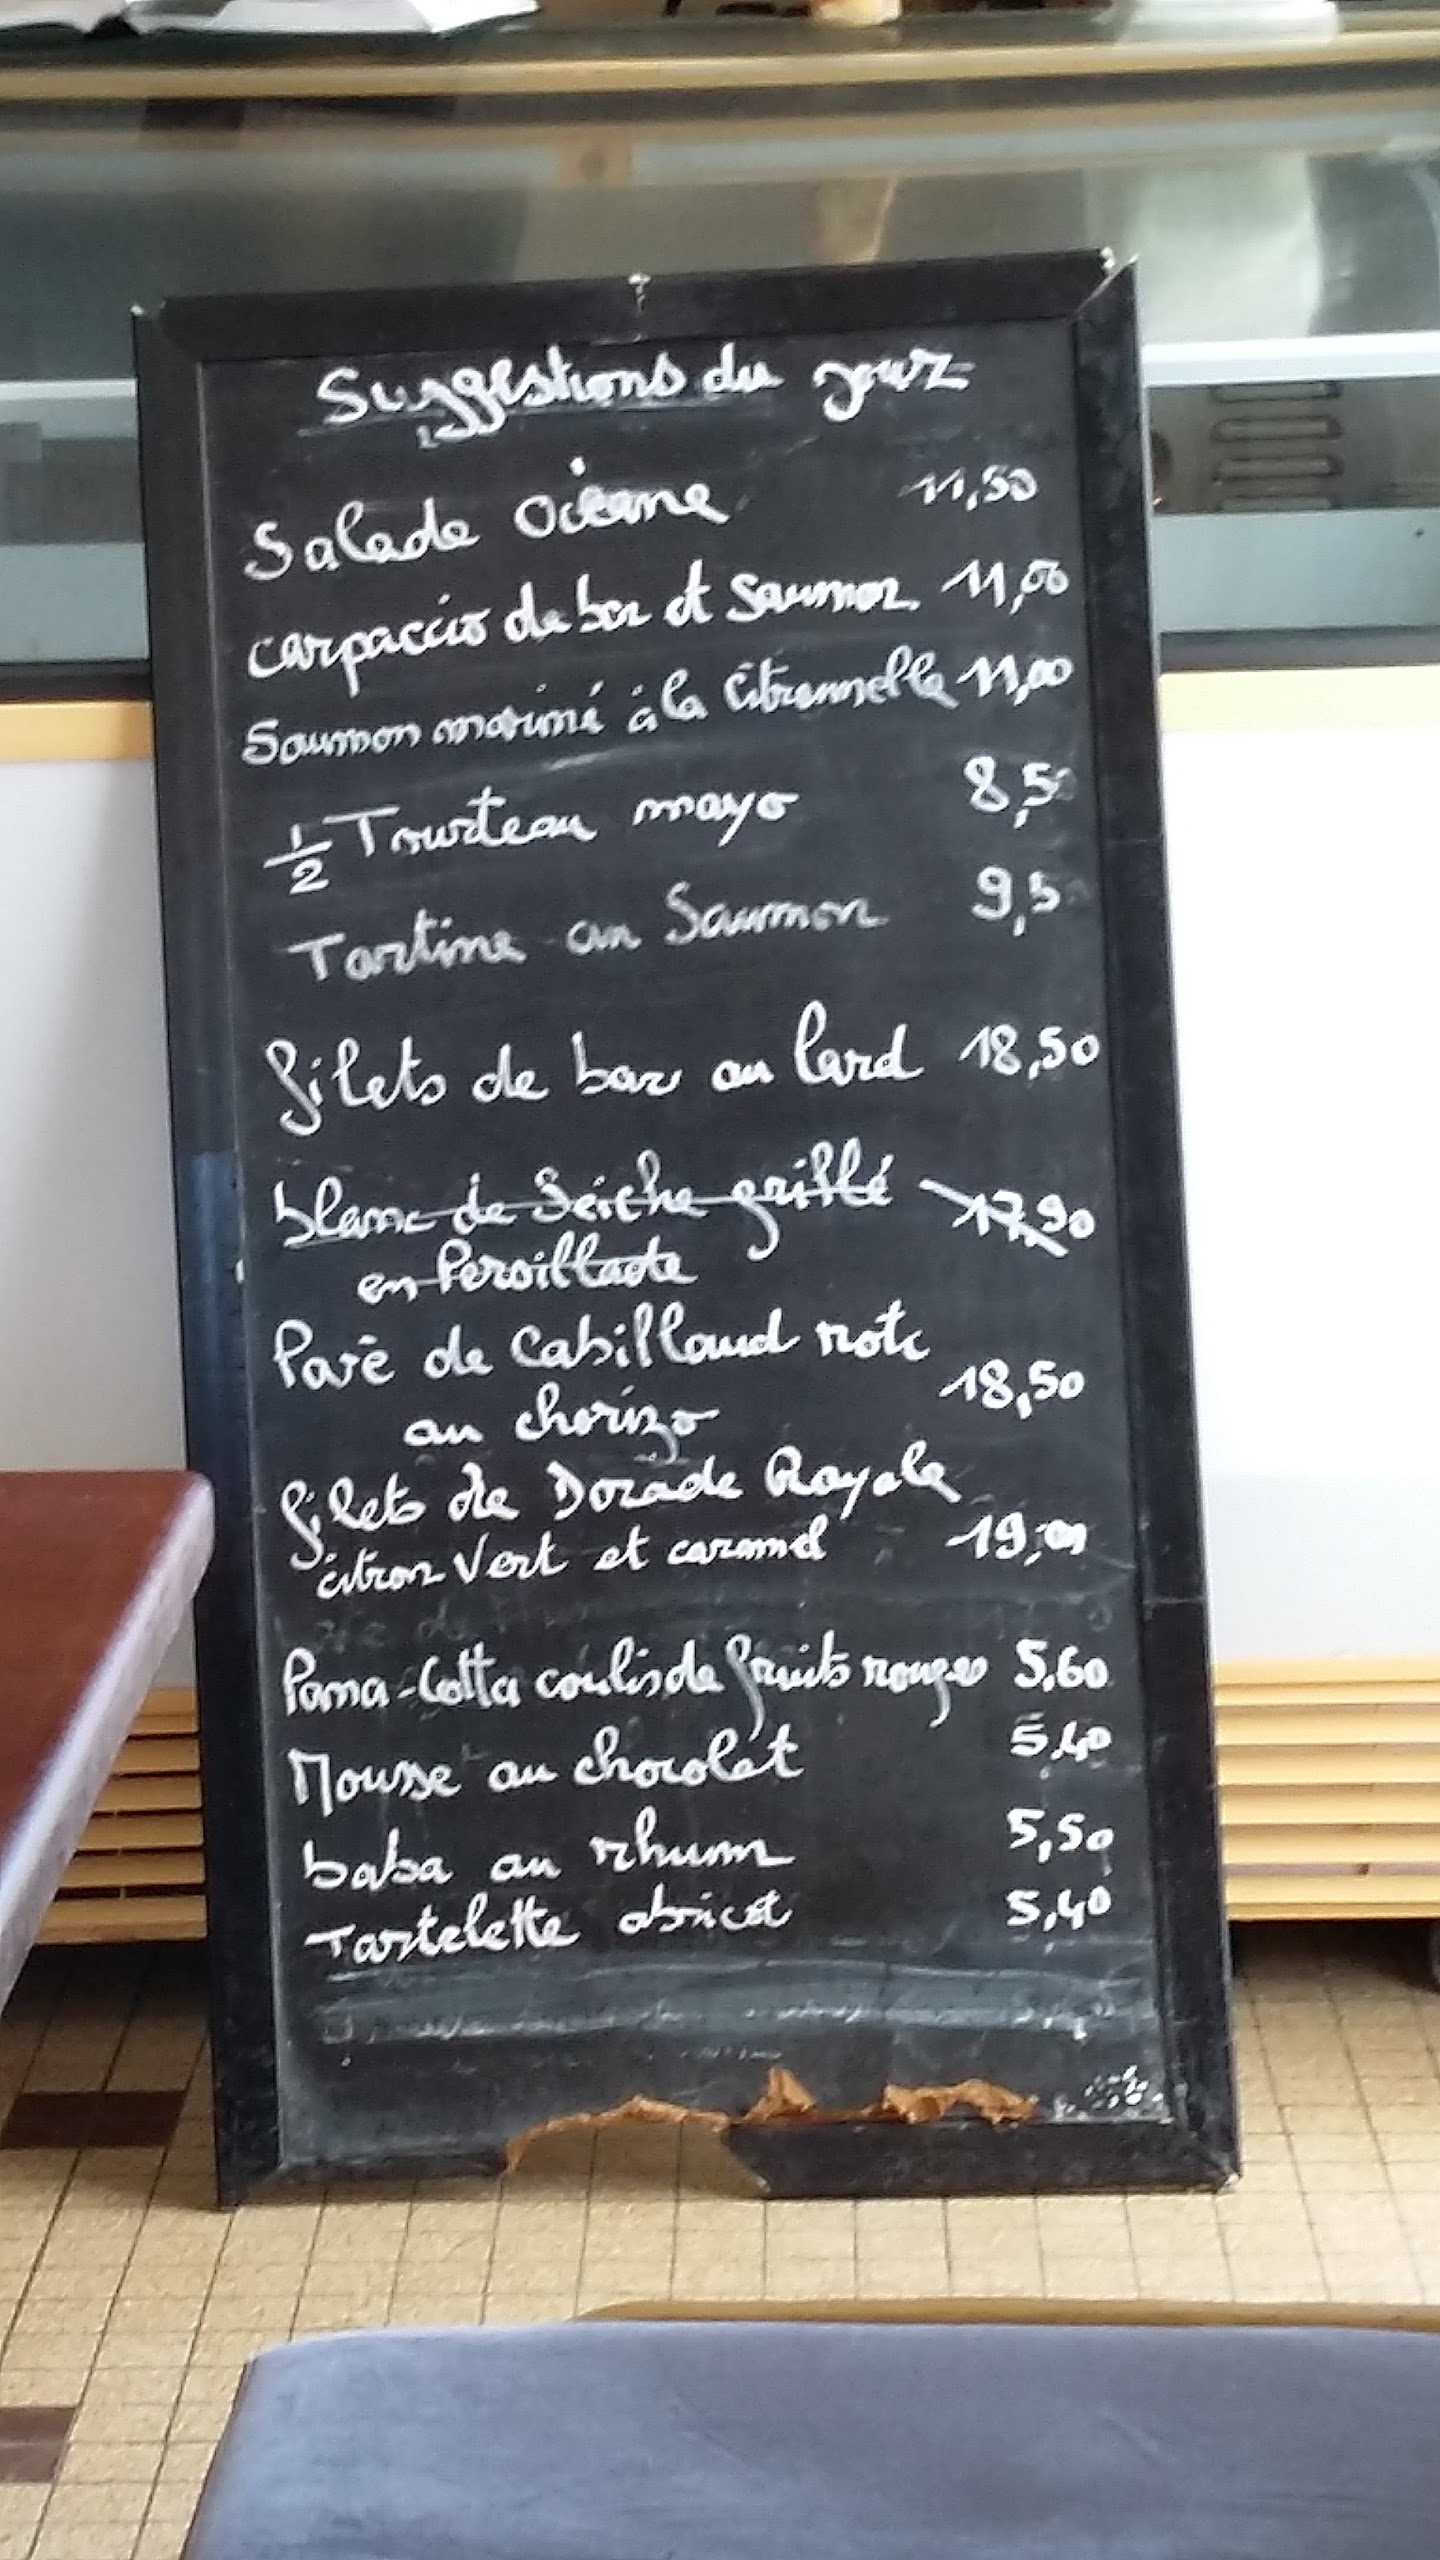 Suggestions du jour
Salade océane 11,50
carpaccio de bar et Saumon 11,00
Saumon mariné à la Citronnelle 11,00
1/2 Tourteau mayo 8,50
Tartine au Saumon 9,5
filets de bar au lard 18,50
blanc de Seiche grillé 17,90
en Persillade
Pavé de Cabillaud roti
au chorizo 18,50
filets de Dorade Royale
citron Vert et caramel 19,00
Pana-Cotta coulis de fruits rouges 5,60
Mousse au chocolat 5,40
baba au rhum 5,50
Tartelette abricot 5,40